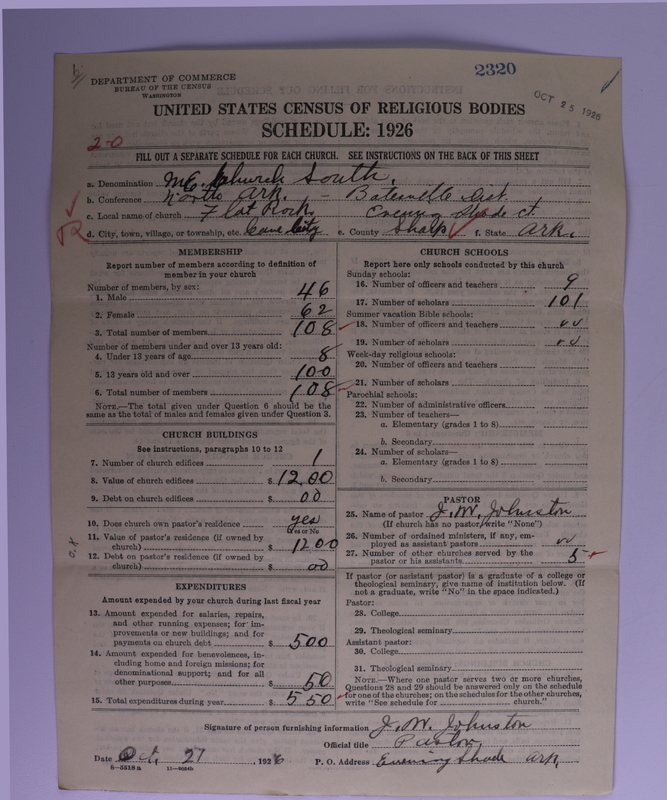 2320
DEPARTMENT OF COMMERCE
BUREAU OF THE CENSUS
WASHINGTON
OCT 25 1926
UNITED STATES CENSUS OF RELIGIOUS BODIES
SCHEDULE: 1926
2-0
FILL OUT A SEPARATE SCHEDULE FOR EACH CHURCH. SEE INSTRUCTIONS ON THE BACK OF THIS SHEET
a. Denomination M.E. Church South.
b. Conference North Ark. - Batesville Dist.
c. Local name of church Flat Rock Evening Shade ct.
d. City, town, village, or township, etc. Cave City e. County Sharp f. State Ark.
MEMBERSHIP
Report number of members according to definition of
member in your church
Number of members, by sex:
1. Male 46
2. Female 62
3. Total number of members 108
Number of members under and over 13 years old:
4. Under 13 years of age 8
5. 13 years old and over 100
6. Total number of members 108
NOTE.—The total given under Question 6 should be the
same as the total of males and females given under Question 3.
CHURCH BUILDINGS
See instructions, paragraphs 10 to 12
7. Number of church edifices 1
8. Value of church edifices $ 1200
9. Debt on church edifices $ 00
10. Does church own pastor's residence yes
Yes or No
11. Value of pastor's residence (if owned by
church) $ 1200
12. Debt on pastor's residence (if owned by
church) $ 00
EXPENDITURES
Amount expended by your church during last fiscal year
13. Amount expended for salaries, repairs,
and other running expenses; for improvements
or new buildings; and for
payments on church debt $ 500
14. Amount expended for benevolences, including
home and foreign missions; for
denominational support; and for all
other purposes $ 50
15. Total expenditures during year $ 550
CHURCH SCHOOLS
Report here only schools conducted by this church
Sunday schools:
16. Number of officers and teachers 9
17. Number of scholars 101
Summer vacation Bible schools:
18. Number of officers and teachers
19. Number of scholars
Week-day religious schools:
20. Number of officers and teachers
21. Number of scholars
Parochial schools:
22. Number of administrative officers
23. Number of teachers—
a. Elementary (grades 1 to 8)
b. Secondary
24. Number of scholars—
a. Elementary (grades 1 to 8)
b. Secondary
PASTOR
25. Name of pastor J. W. Johnston
(If church has no pastor, write "None")
26. Number of ordained ministers, if any, employed
as assistant pastors
27. Number of other churches served by the
pastor or his assistants 5
If pastor (or assistant pastor) is a graduate of a college or
theological seminary, give name of institution below. (If
not a graduate, write "No" in the space indicated.)
Pastor:
28. College
29. Theological seminary
Assistant pastor:
30. College
31. Theological seminary
NOTE.—Where one pastor serves two or more churches,
Questions 28 and 29 should be answered only on the schedule
for one of the churches; on the schedules for the other churches,
write "See schedule for church."
Signature of person furnishing information J. W. Johnston
Official title Pastor
Date Oct. 27, 1926 P. O. Address Evening Shade Ark.
8-5518a